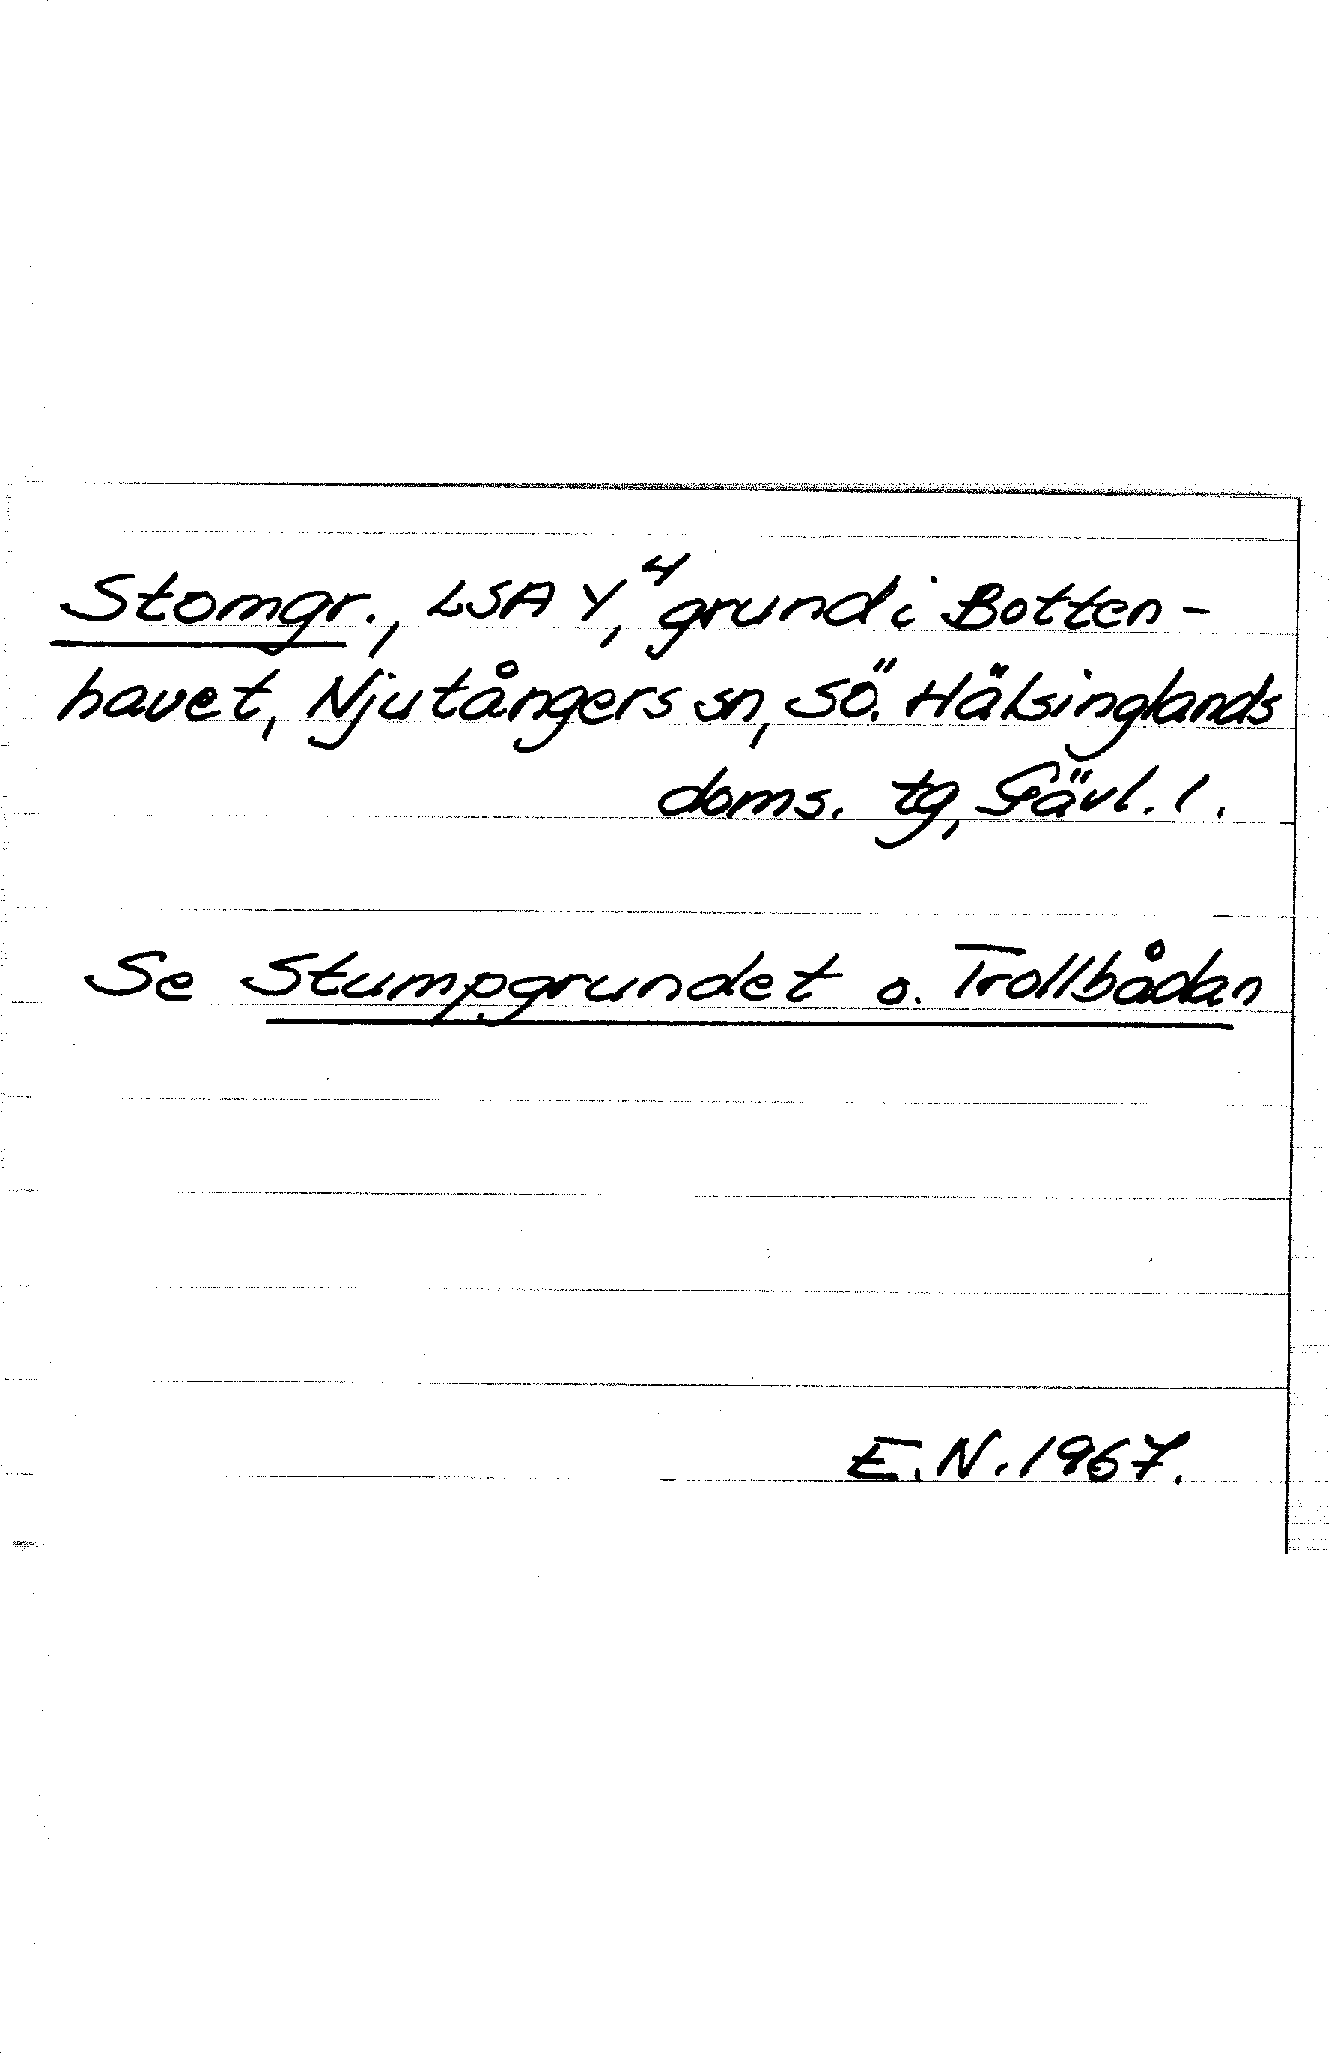 Stomgr., LSA Y,⁴ grund i Botten-
havet, Njutångers sn, SÖ. Hälsinglands
doms. tg, Gävl. l.
Se Stumpgrundet o. Trollbådan
E.N. 1967.